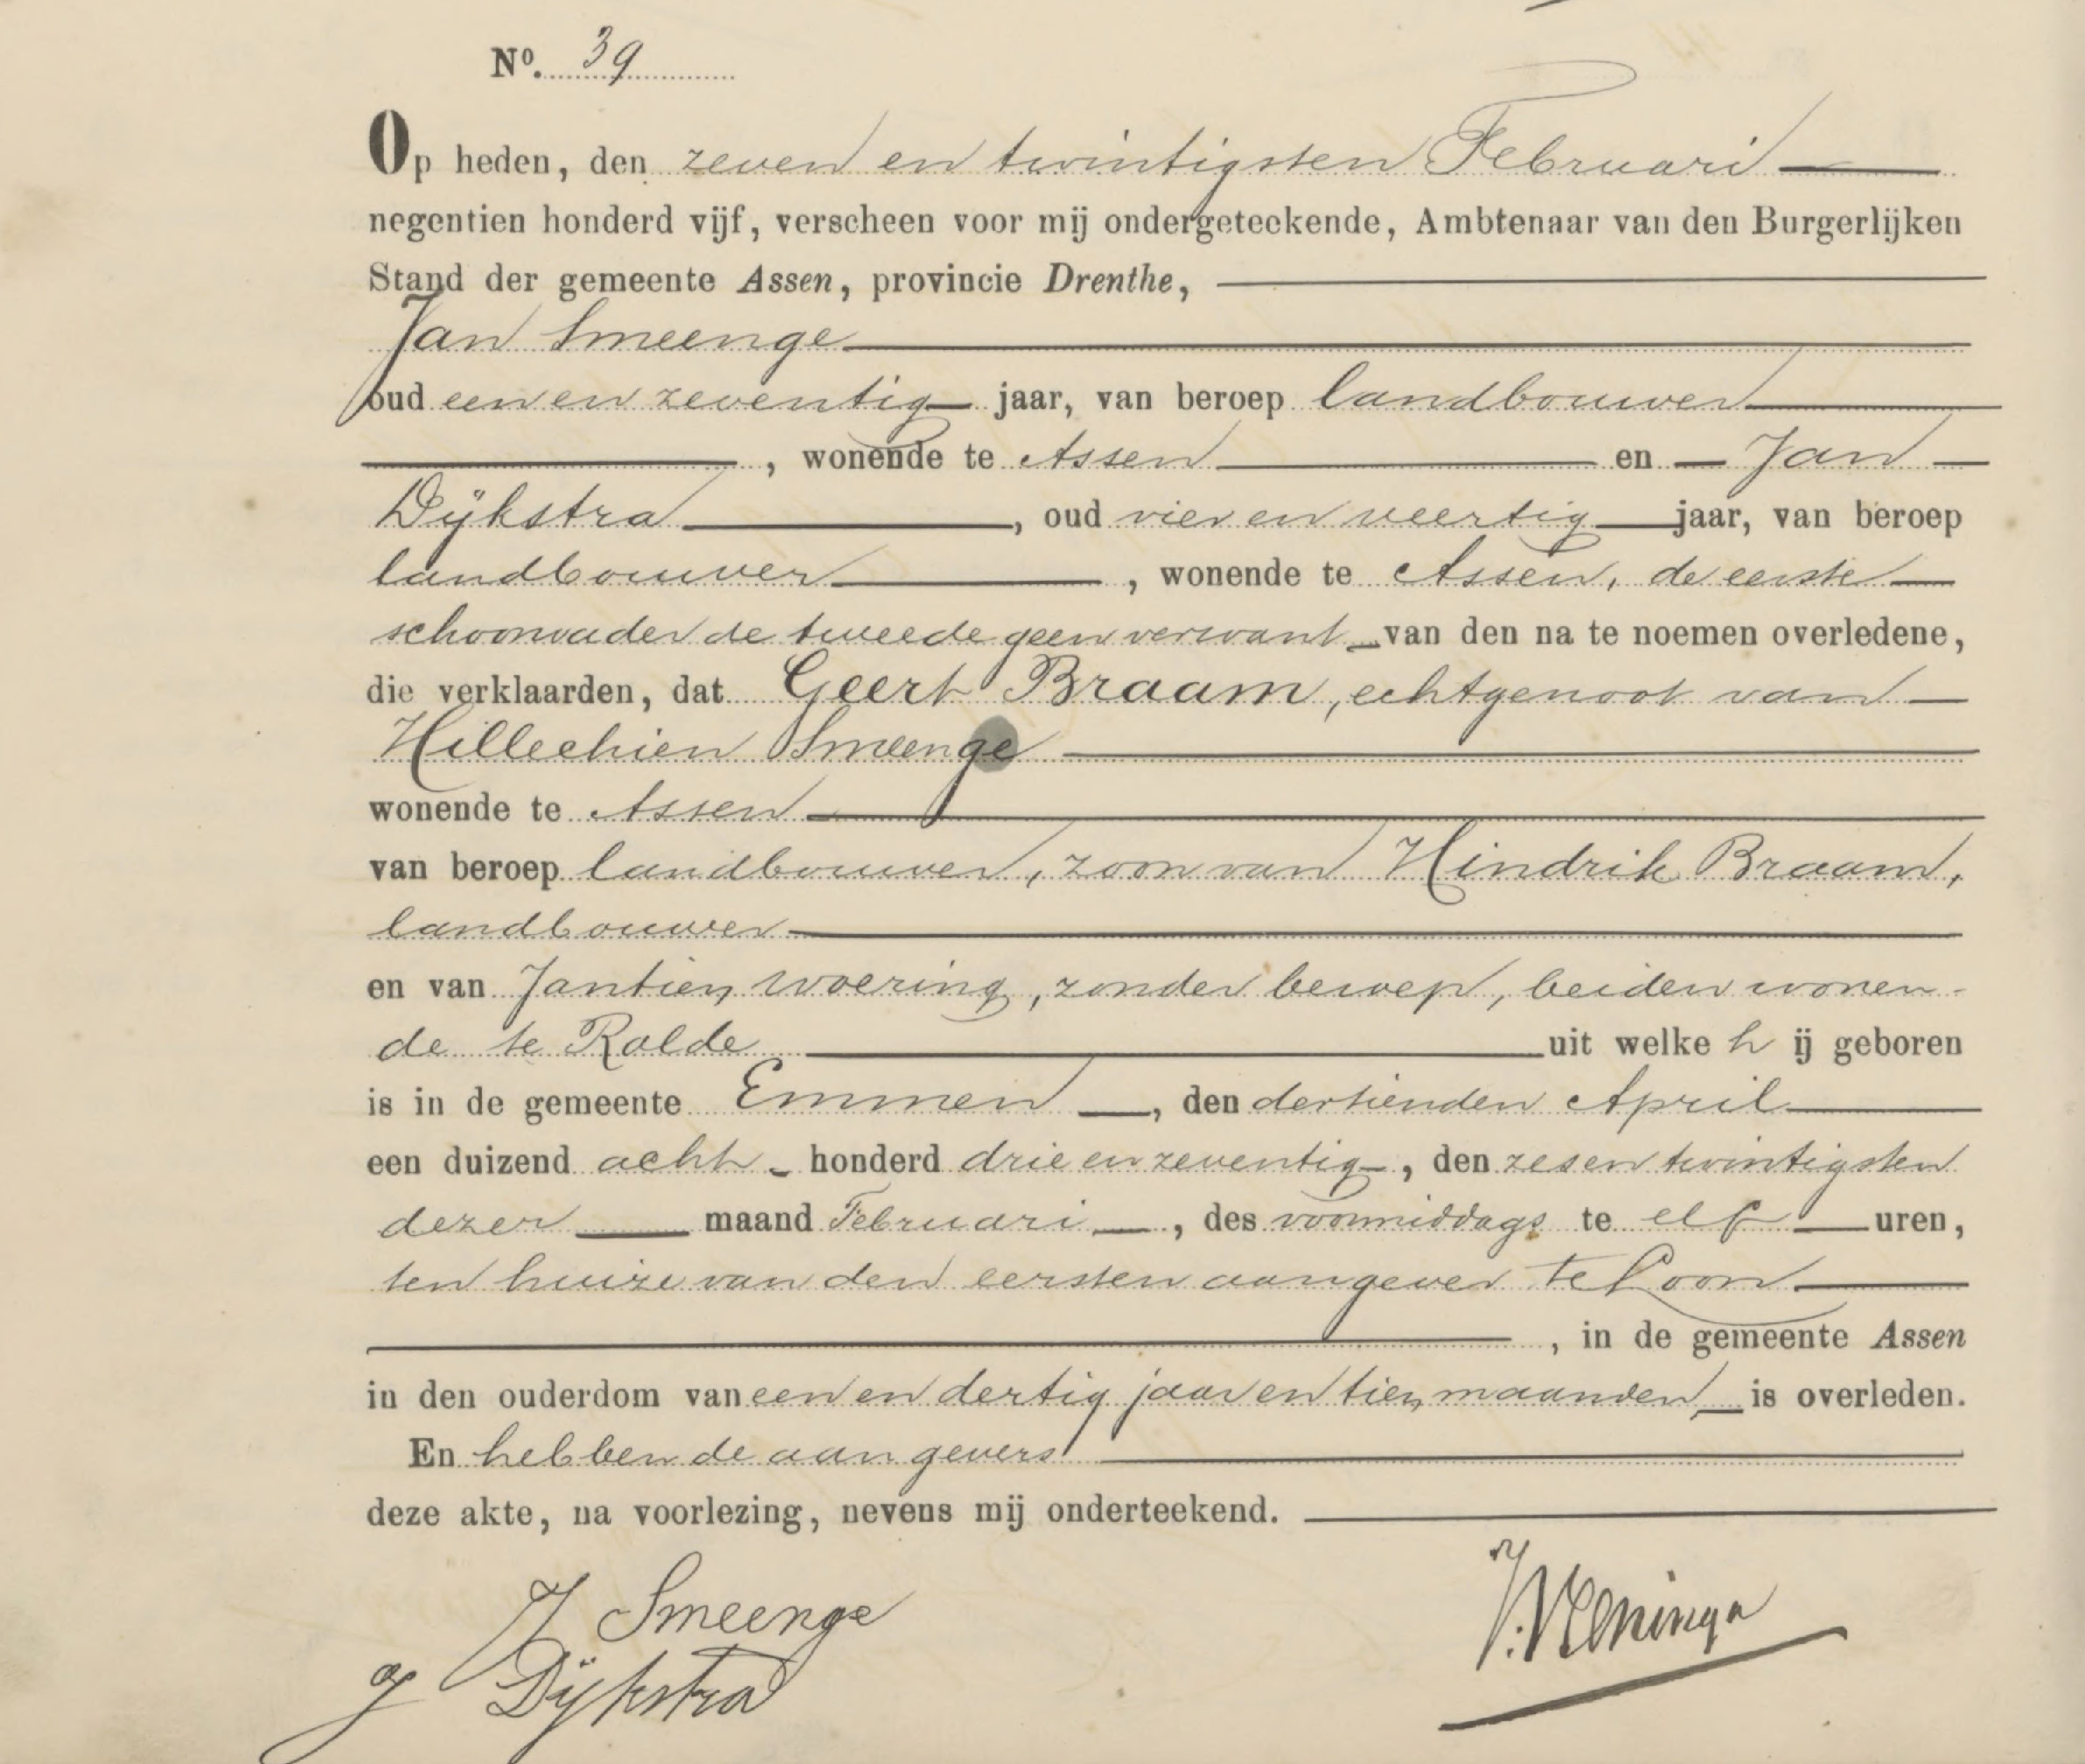 Nº. 39
Op heden, den zeven en twintigsten Februari
negentien honderd vijf, verscheen voor mij ondergeteekende, Ambtenaar van den Burgerlijken
Stand der gemeente Assen, provincie Drenthe,
Jan Smeenge
oud een en zeventig jaar, van beroep landbouwer
, wonende te Assen en Jan
Dijkstra, oud vier en veertig jaar, van beroep
landbouwer, wonende te Assen, de eerste
schoonvader de tweede geen verwant van den na te noemen overledene,
die verklaarden, dat Geert Braam, echtgenoot van
Hillechien Smeenge
wonende te Assen
van beroep landbouwer, zoon van Hindrik Braam,
landbouwer
en van Jantien Woering, zonder beroep, beiden wonen-
de te Rolde uit welke h ij geboren
is in de gemeente Emmen, den dertienden April
een duizend acht honderd drie en zeventig, den zes en twintigsten
dezer maand Februari, des voormiddags te elf uren,
ten huize van den eersten aangever te Loon
, in de gemeente Assen
in den ouderdom van een en dertig jaar en tien maanden is overleden.
En hebben de aangevers
deze akte, na voorlezing, nevens mij onderteekend.
J Smeenge
J Dijkstra